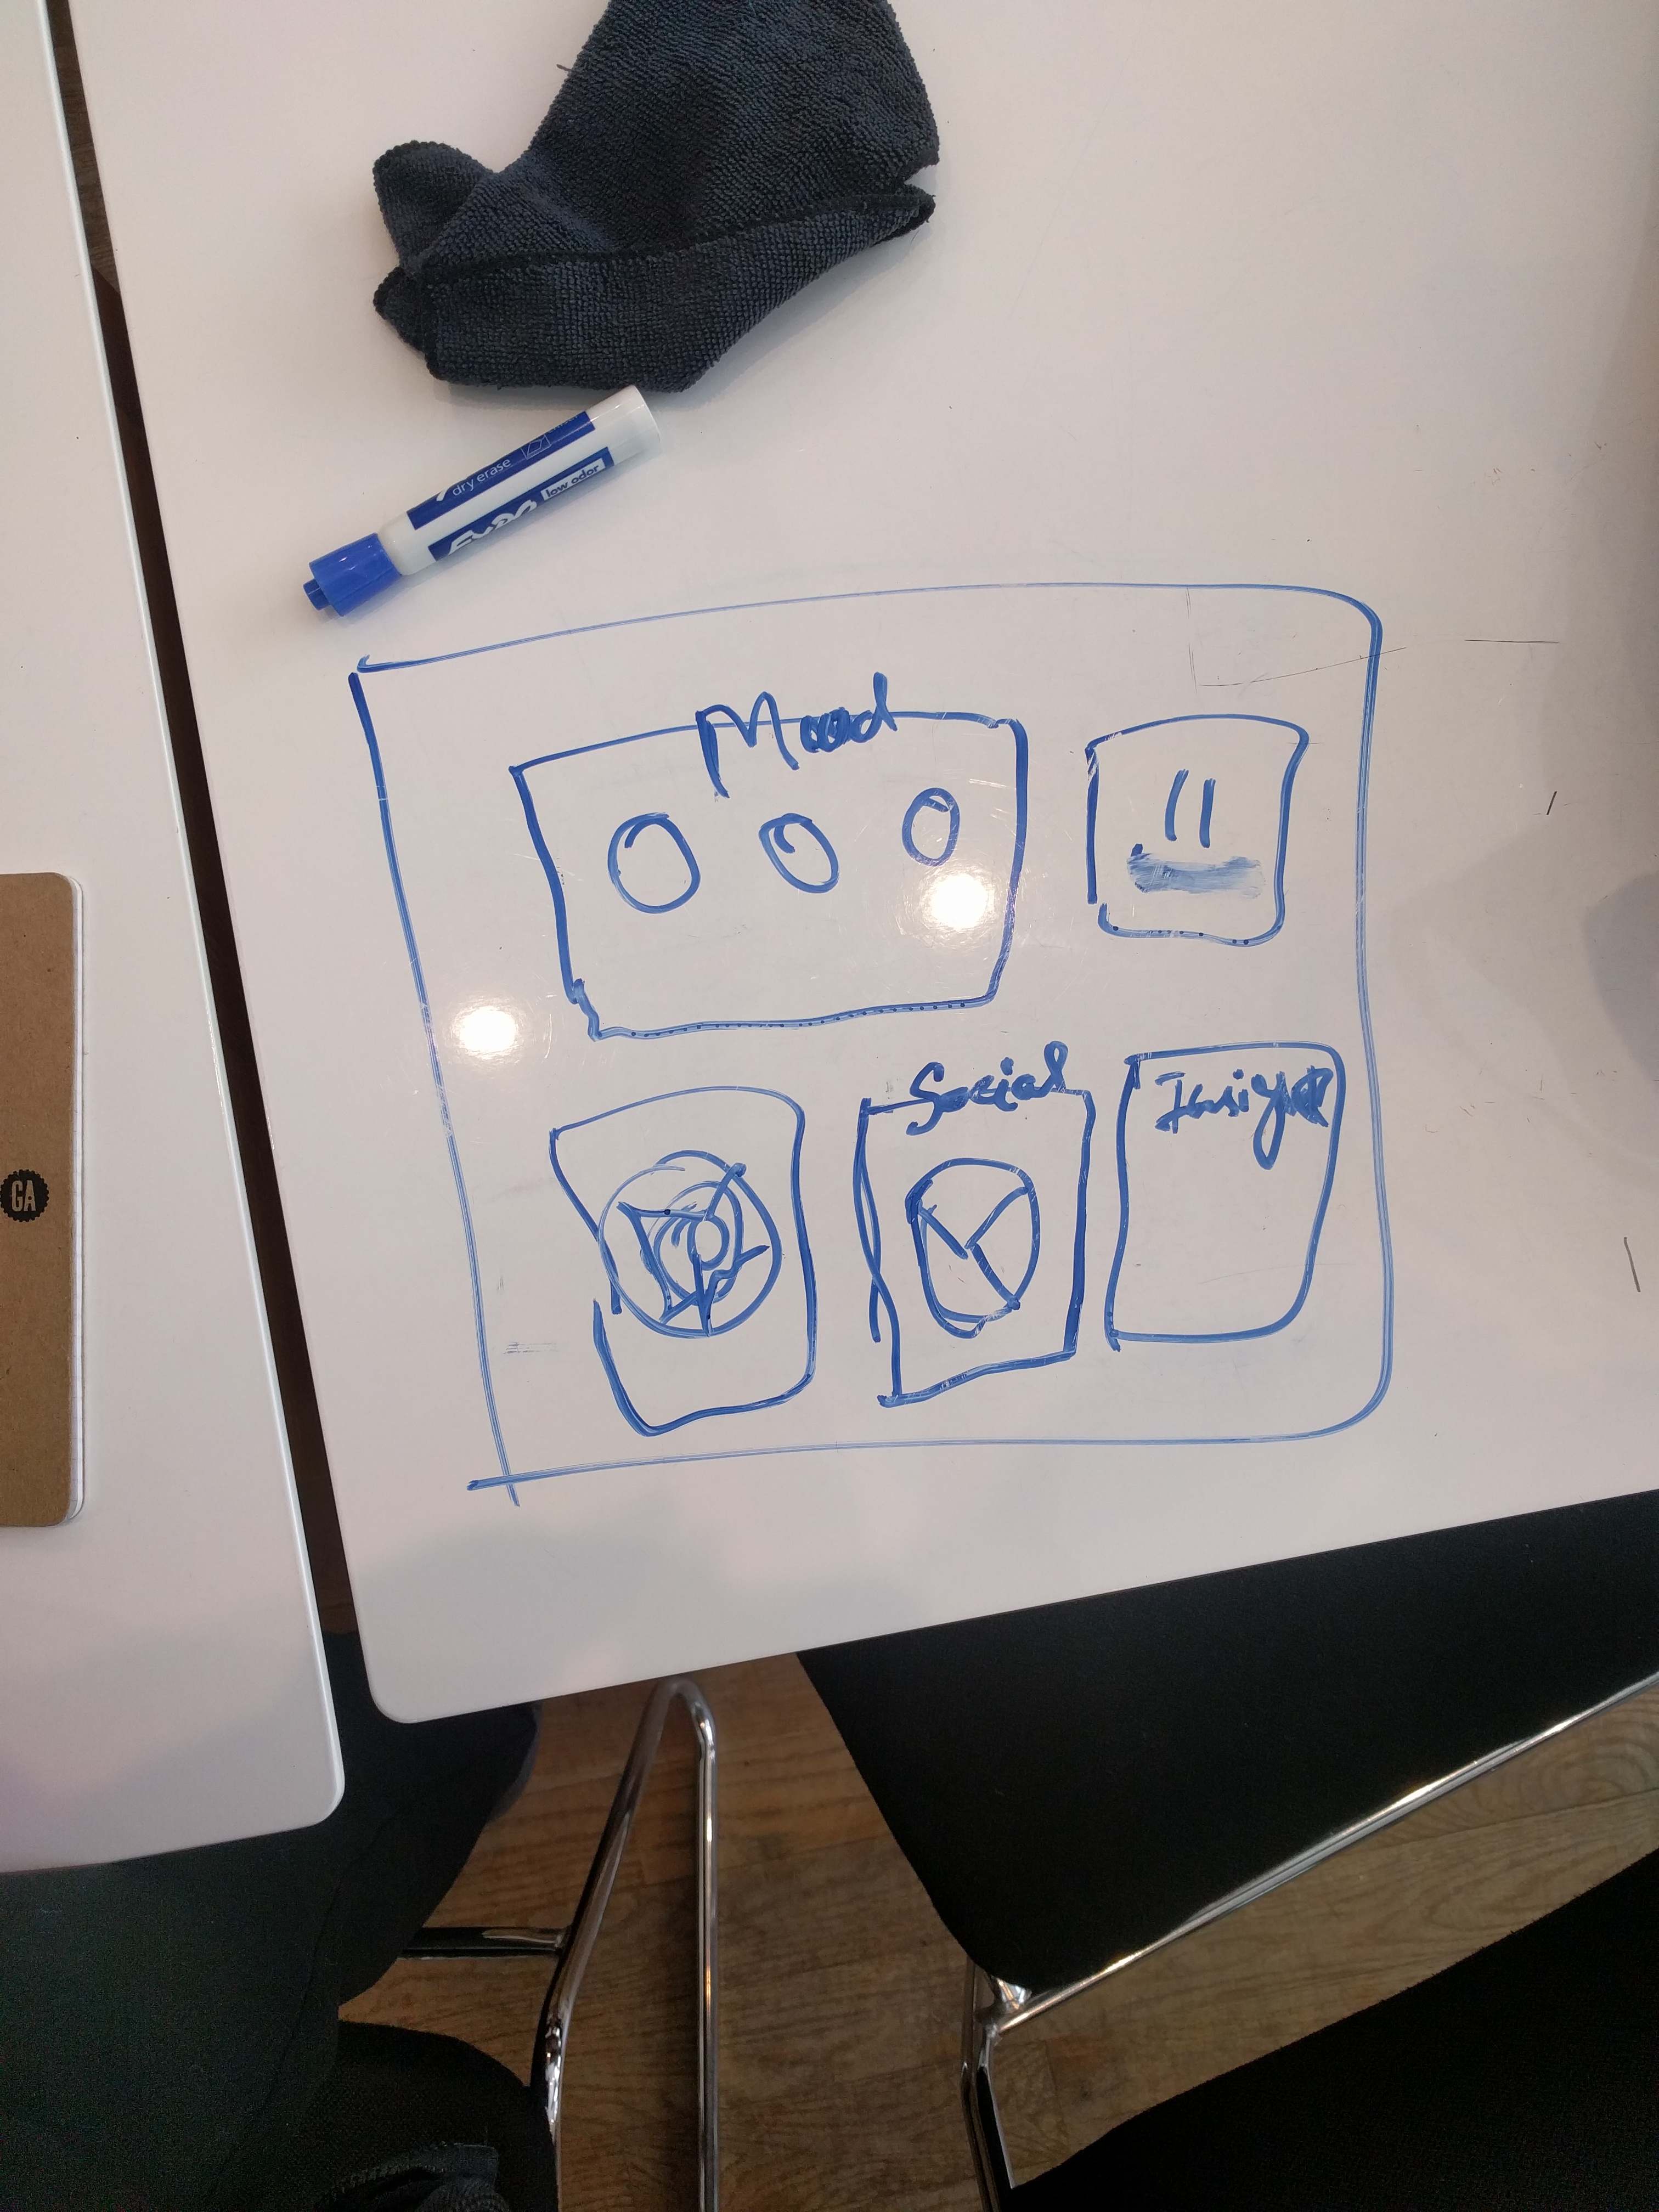 dry erase
EXPO low odor
Mood
Social
Insight
GA